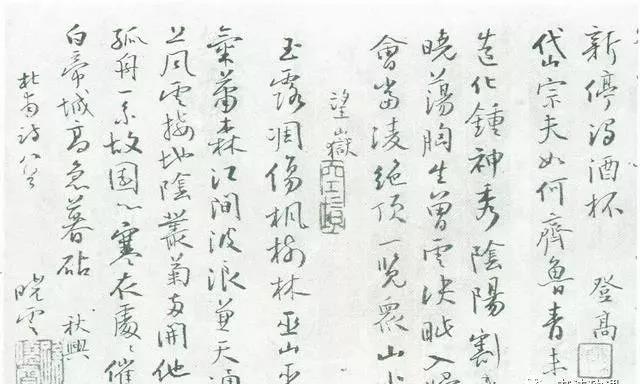 新停濁酒杯 登高
岱宗夫如何齊魯青未
造化鍾神秀陰陽割
曉蕩胸生曾雲決眦入歸
會當凌絕頂一覽眾山小
望嶽
玉露凋傷楓樹林巫山巫
氣蕭森江間波浪兼天湧
上風雲接地陰叢菊兩開他
孤舟一系故園心寒衣處〻催
白帝城高急暮砧 秋興
杜甫詩
曉雲